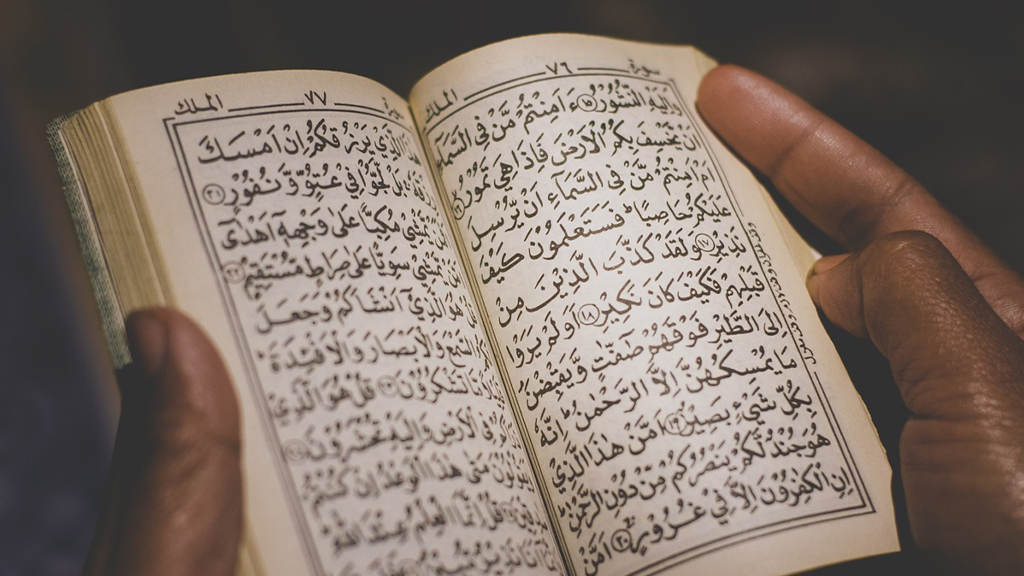 سورة ٧٦ الملك
وَاِلَيْهِ النُّشُوْرُ ⑮ ءَاَمِنْتُمْ مَّنْ فِى السَّمَآءِ
اَنْ يَّخْسِفَ بِكُمُ الْاَرْضَ فَاِذَا هِيَ تَمُوْرُ
اَمْ اَمِنْتُمْ مَّنْ فِى السَّمَآءِ اَنْ يُّرْسِلَ
عَلَيْكُمْ حَاصِبًا ؕ فَسَتَعْلَمُوْنَ كَيْفَ
نَذِيْرِ ⑰ وَلَقَدْ كَذَّبَ الَّذِيْنَ مِنْ
قَبْلِهِمْ فَكَيْفَ كَانَ نَكِيْرِ ⑱ اَوَلَمْ يَرَوْا
اِلَى الطَّيْرِ فَوْقَهُمْ صٰٓفّٰتٍ وَّيَقْبِضْنَ
مَا يُمْسِكُهُنَّ اِلَّا الرَّحْمٰنُ ؕ اِنَّهٗ
بِكُلِّ شَيْءٍ بَصِيْرٌ ⑲ اَمَّنْ هٰذَا الَّذِيْ
هُوَ جُنْدٌ لَّكُمْ يَنْصُرُكُمْ مِّنْ دُوْنِ الرَّحْمٰنِ
اِنِ الْكٰفِرُوْنَ اِلَّا فِيْ غُرُوْرٍ ⑳ اَمَّنْ
سورة ٧٧ الملك
هٰذَا الَّذِيْ يَرْزُقُكُمْ اِنْ اَمْسَكَ
بَلْ لَّجُّوْا فِيْ عُتُوٍّ وَّنُفُوْرٍ ㉑
يَّمْشِيْ مُكِبًّا عَلٰى وَجْهِهٖۤ اَهْدٰۤى
يَّمْشِيْ سَوِيًّا عَلٰى صِرَاطٍ مُّسْتَقِيْمٍ ㉒
هُوَ الَّذِيْۤ اَنْشَاَكُمْ وَجَعَلَ
السَّمْعَ وَالْاَبْصَارَ وَالْاَفْـِٕدَةَ
تَشْكُرُوْنَ ㉓ قُلْ هُوَ الَّذِيْ
الْاَرْضِ وَاِلَيْهِ تُحْشَرُوْنَ ㉔
مَتٰى هٰذَا الْوَعْدُ اِنْ كُنْتُمْ
قُلْ اِنَّمَا الْعِلْمُ عِنْدَ اللّٰهِ
نَذِيْرٌ مُّبِيْنٌ